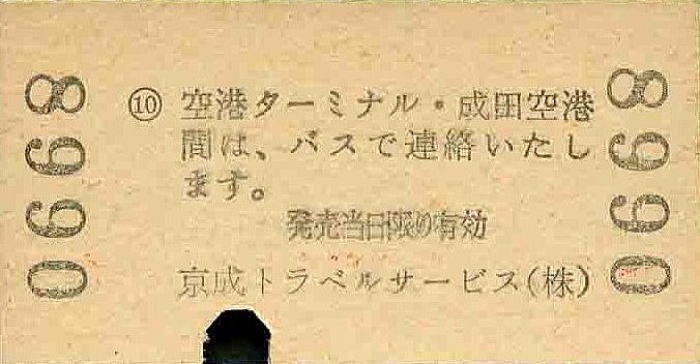 0668
⑩ 空港ターミナル・成田空港
間は、バスで連絡いたし
ます。
発売当日限り有効
京成トラベルサービス(株)
0668